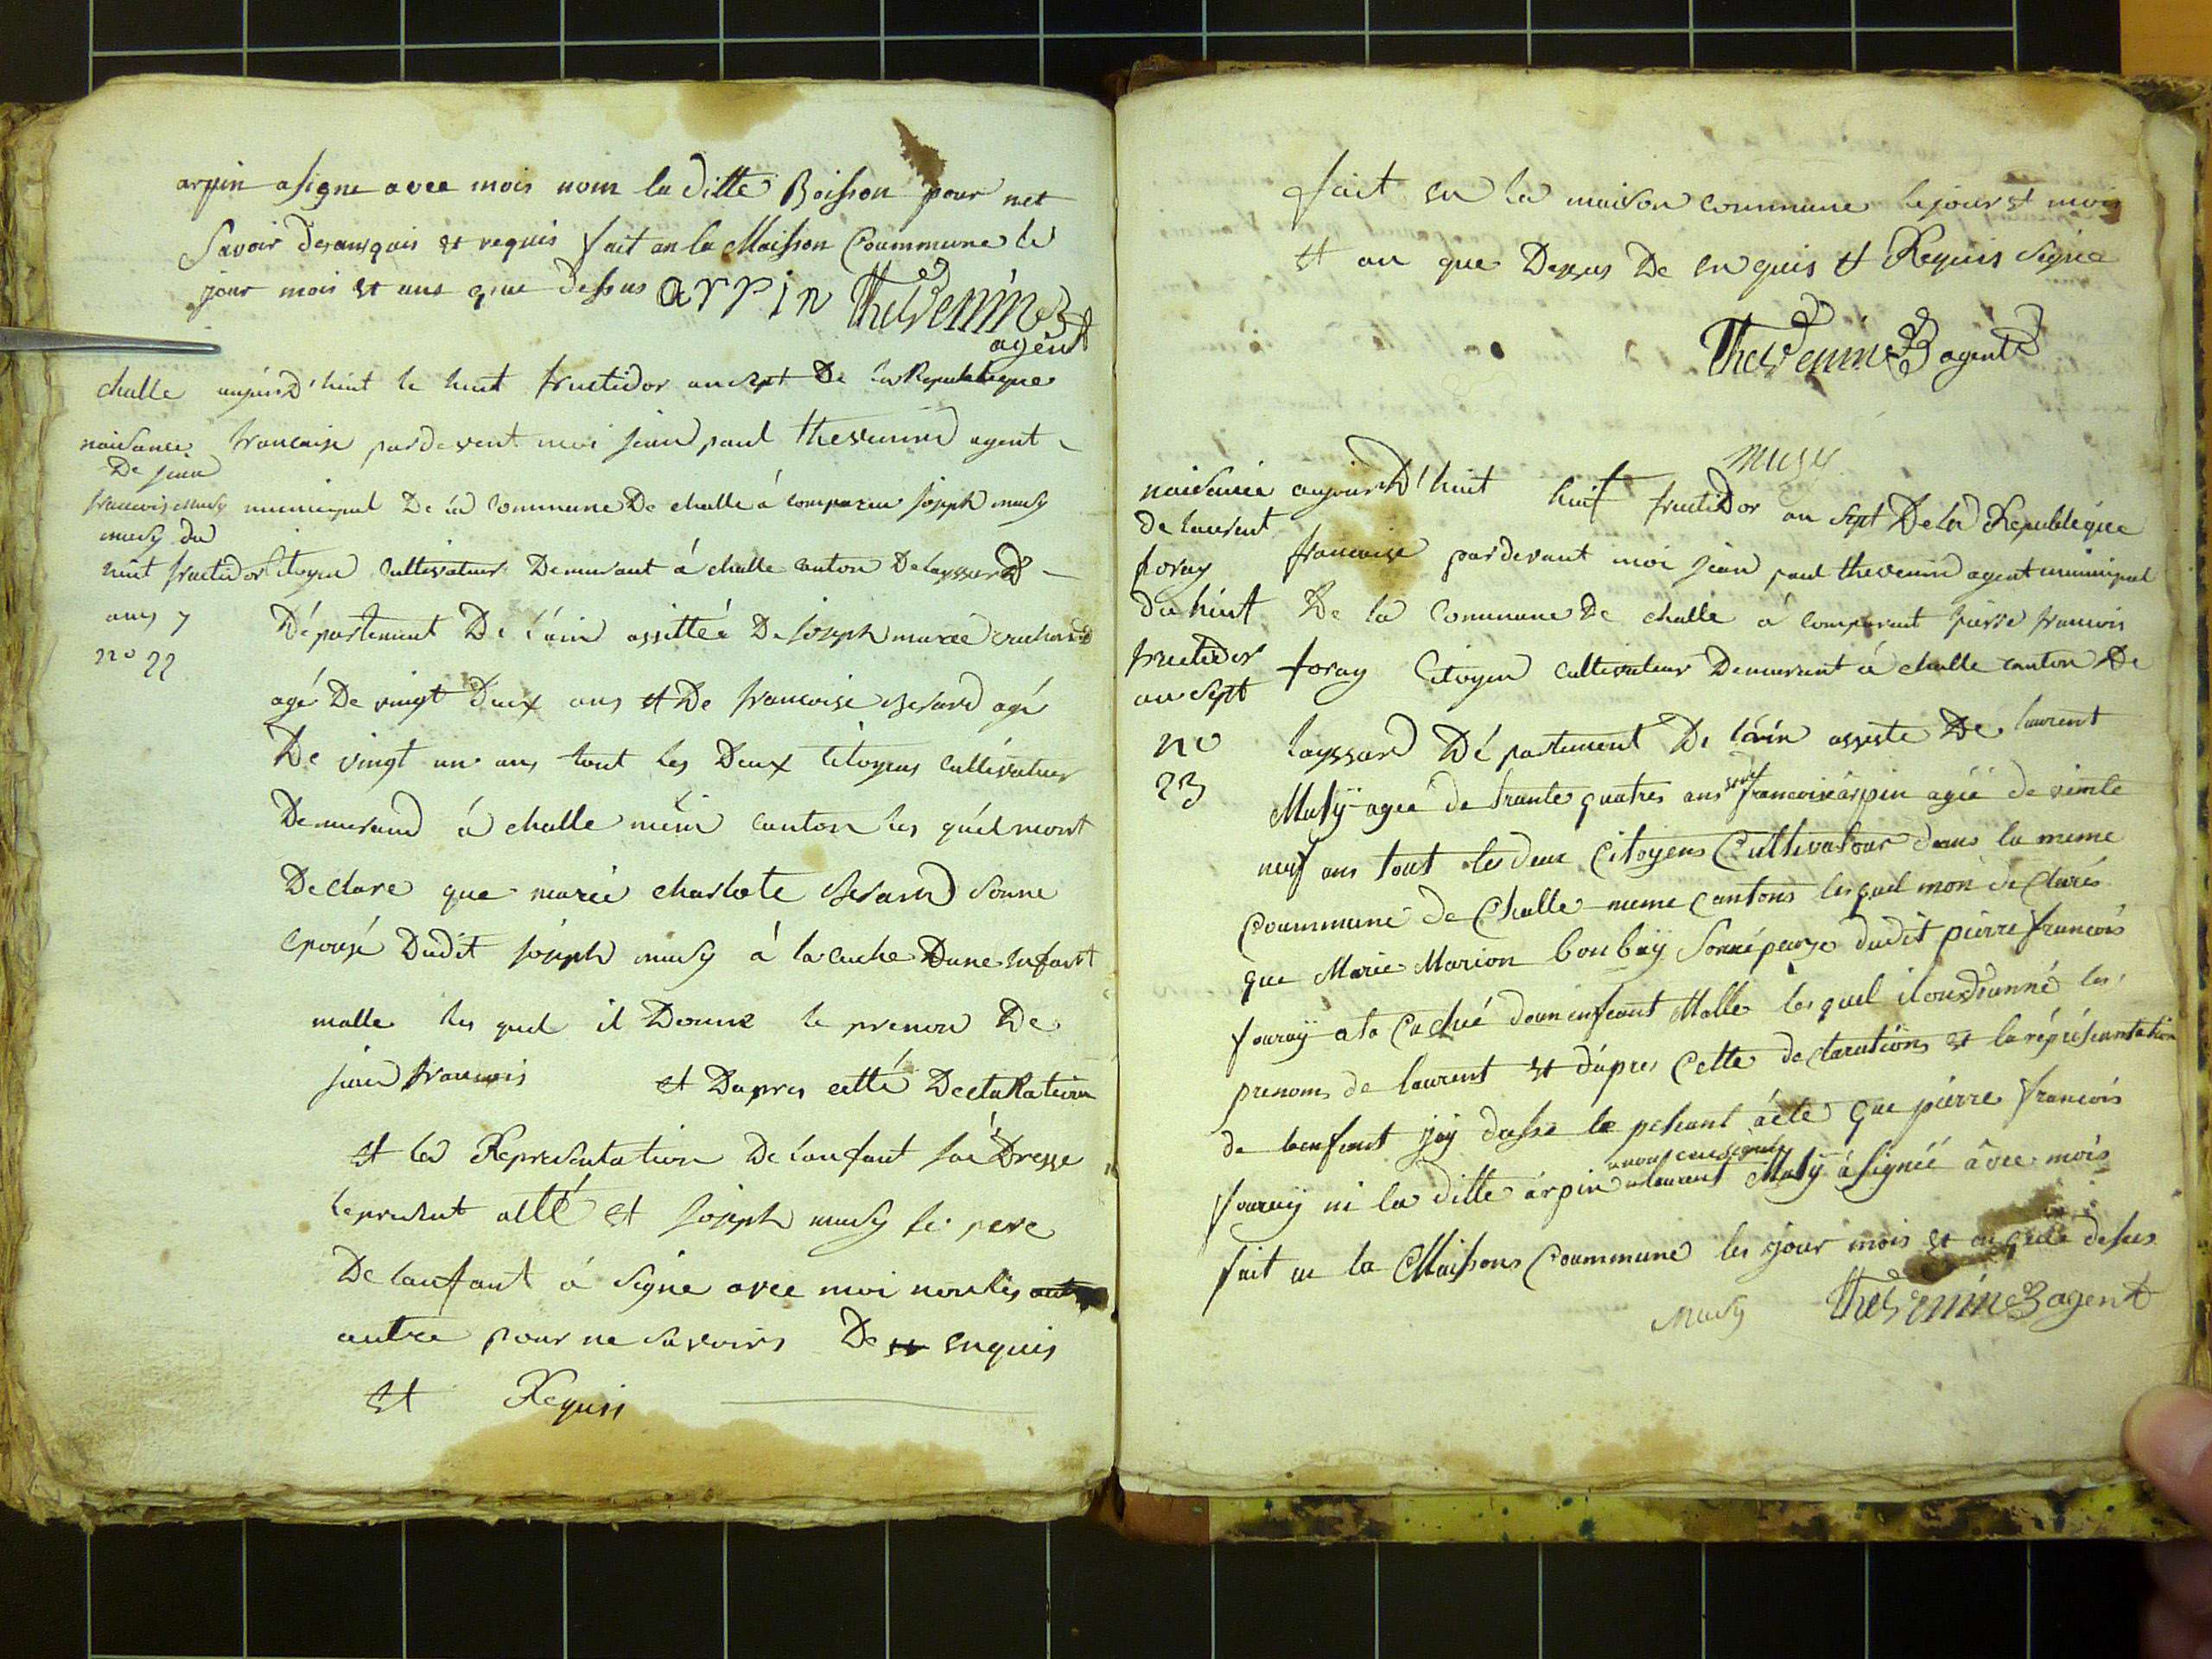 arpin a signe avee mois nom la ditte Boisson pour net
Savoir desansquis et requis fait an la Maisson Coummune le
jour mois et ans que dessus arpin Thevenin
agent
challe
naisance
De jean
francois musy
musy du
huit fructidor
ans 7
no 22
aujourd'huit le huit fructidor an sept De la Republeque
francaise pardevent moi jean paul thevenin agent
municipal De la Commune De challe á comparu joseph musy
Citoyen Cultivateur Demurant á challe canton De layssard
Département De l'ain assittée De joseph marie
agé De vingt Deux ans et De francoise Berard agé
De vingt un ans tout les Deux Citoyens Cultivateur
Demurand á challe mém canton les quel mont
Declare que marie charlote Berard sonne
epousé Dudit joseph musy á la cuche Dune enfant
malle les quel il Donne le prenon De
jean francois et Dapres cette DeclaRation
et la Representation De lanfant jai Dresse
le presant atté et joseph musy le pere
De lanfant á signé avec moi non les
autre pour ne savoirs De enquis
et Requis
fait en la maison commune le jour et mois
et an que Dessus De enquis et Requis signé
Thevenin agent
musy
naisance
de laurent
foray
du huit
fructidor
an sept
no
23
aujourd'huit huit fructidor an sept De la Republeque
francaise pardevant moi jean paul thevenin agent municipal
De la Commune De challe á comparut pierre francois
foray Citoyen Cultivateur Demurant á challe canton De
layssard Département De l'ain assiste De laurent
Musÿ agee de trante quatres ans francoise arpin agée de vinte
neuf ans tout les deux Citoyens Cultivatour dans la meme
Coummune de Challe meme cantons les quel mon declarés
que Marie Marion boubaÿ Sonnépouze dudit pierre francois
fouraÿ a la Cuché doun enfeant Malle les quel il ons donné les
prenoms de laurent et dapres Cette declarations et la répresantation
de lenfant jaÿ dasse le pesant acte que pierre francois
fouraÿ ni la ditte arpin laurent Musÿ a signée avee mois
fait en la Maissons Coummune les jour mois et an que desus
musy Thevenin agent